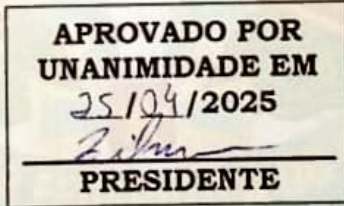 APROVADO POR
UNANIMIDADE EM
25/04/2025
PRESIDENTE